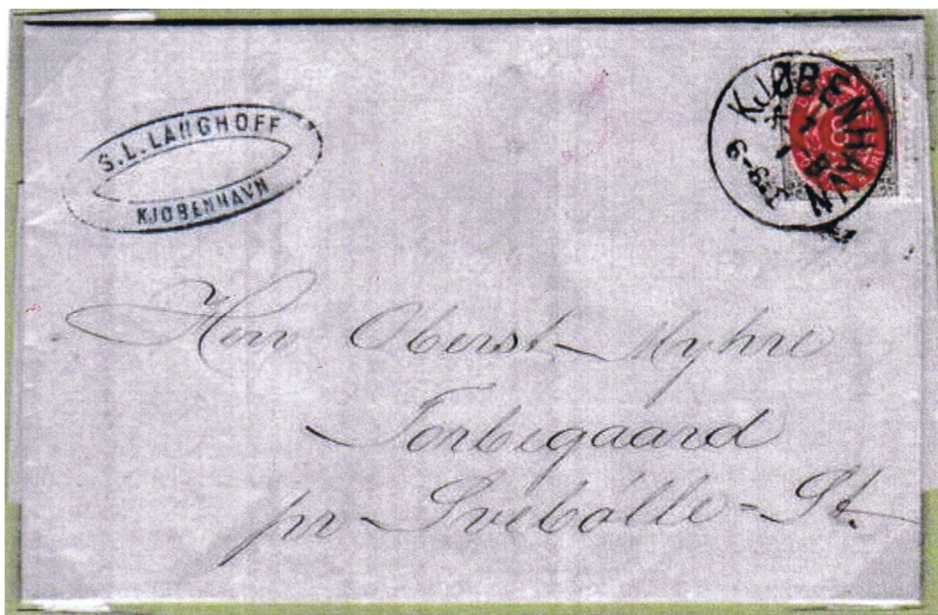 S.L. LANGHOFF
KJØBENHAVN
KJØBENHAVN
8
Herr Oberst Myhre
Torbegaard
pr Svebølle-St.